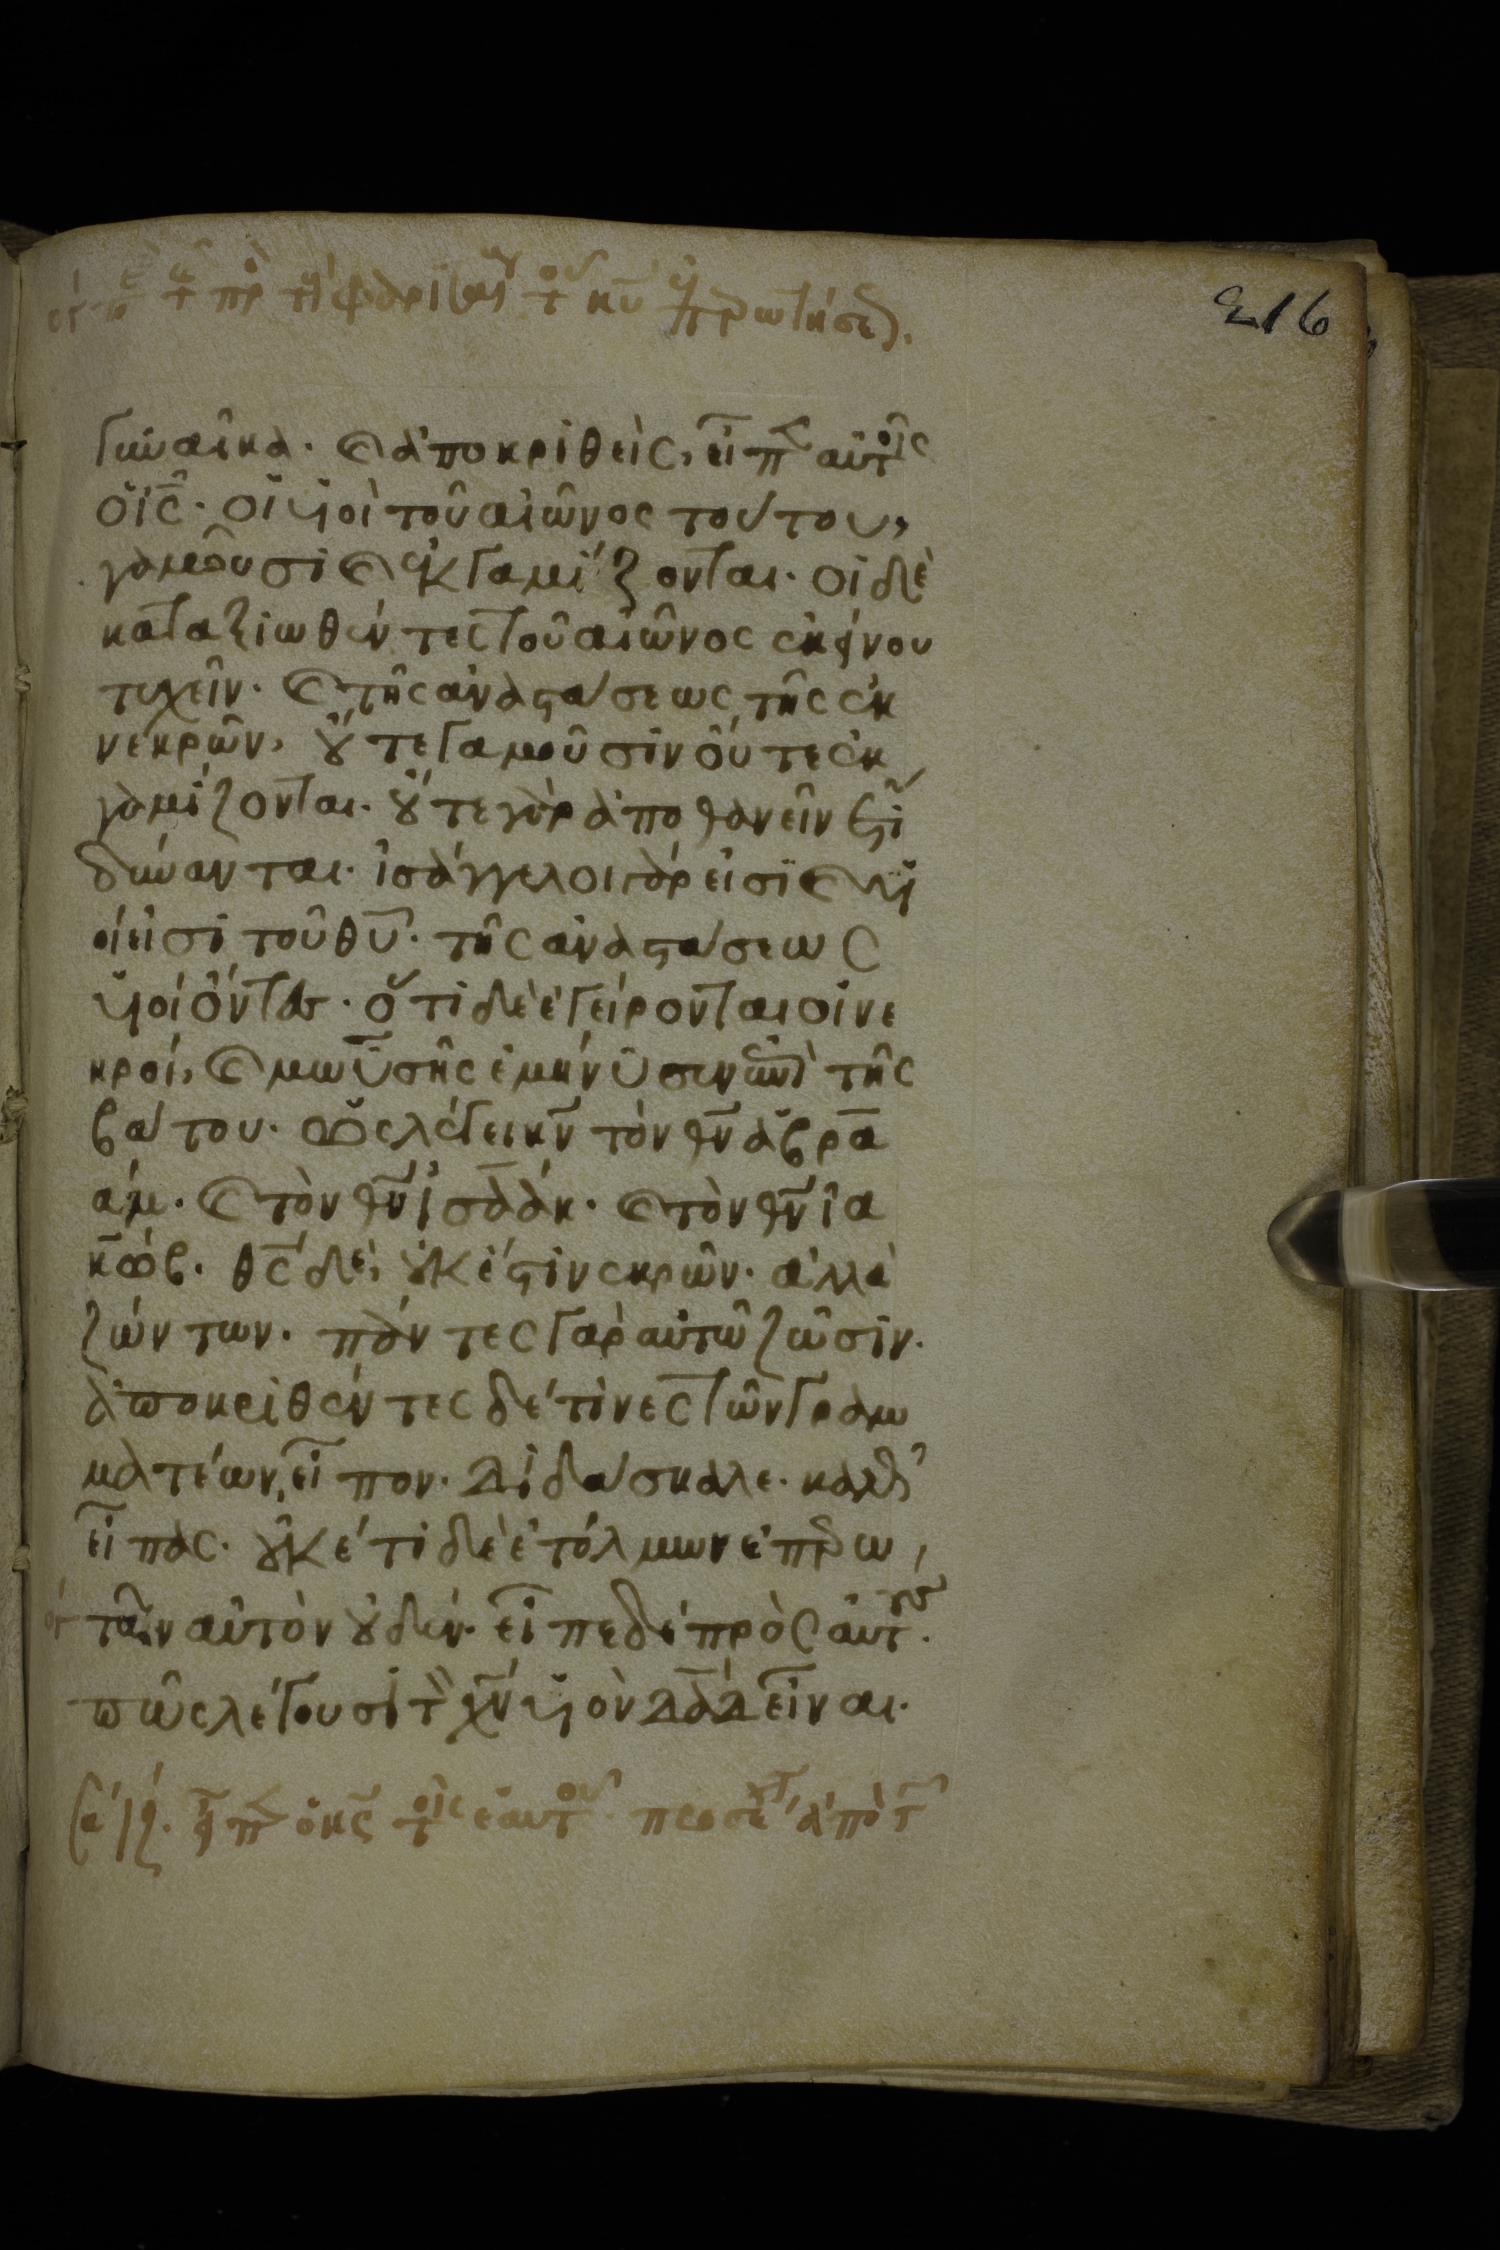 216
γυναῖκα. καὶ ἀποκριθεὶς, εἶπεν αὐτοῖς
ὁ ἰς̅. οἱ υἱοὶ τοῦ αἰῶνος τούτου,
γαμοῦσι καὶ ἐκγαμίζονται. οἱ δὲ
καταξιωθέντες τοῦ αἰῶνος ἐκείνου
τυχεῖν. καὶ τῆς ἀναστάσεως τῆς ἐκ
νεκρῶν, οὔτε γαμοῦσιν οὔτε ἐκ
γαμίζονται. οὔτε γὰρ ἀποθανεῖν ἔτι
δύνανται. ἰσάγγελοι γάρ εἰσι καὶ υἱ
οί εἰσι τοῦ θυ̅. τῆς ἀναστάσεως
υἱοὶ ὄντες. ὅτι δὲ ἐγείρονται οἱ νε
κροί, καὶ μωϋσῆς ἐμήνυσεν ἐπὶ τῆς
βάτου. ὡς λέγει κν̅ τὸν θν̅ ἀβρα
άμ. καὶ τὸν θν̅ ἰσαάκ. καὶ τὸν θν̅ ἰα
κώβ. θς̅ δὲ, οὐκ ἔστι νεκρῶν. ἀλλὰ
ζώντων. πάντες γὰρ αὐτῶ ζῶσιν.
ἀποκριθέντες δέ τινες τῶν γραμ
ματέων, εἶπον. διδάσκαλε. καλῶς
εἶπας. οὐκέτι δὲ ἐτόλμων ἐπερω
τᾶν αὐτὸν οὐδέν. εἶπε δὲ πρὸς αὐτούς.
πῶς λέγουσι τὸν χν̅ υἱὸν δαδ̅ εἶναι.
εἶπεν ὁ κς̅ τοῖς ἑαυτοῦ